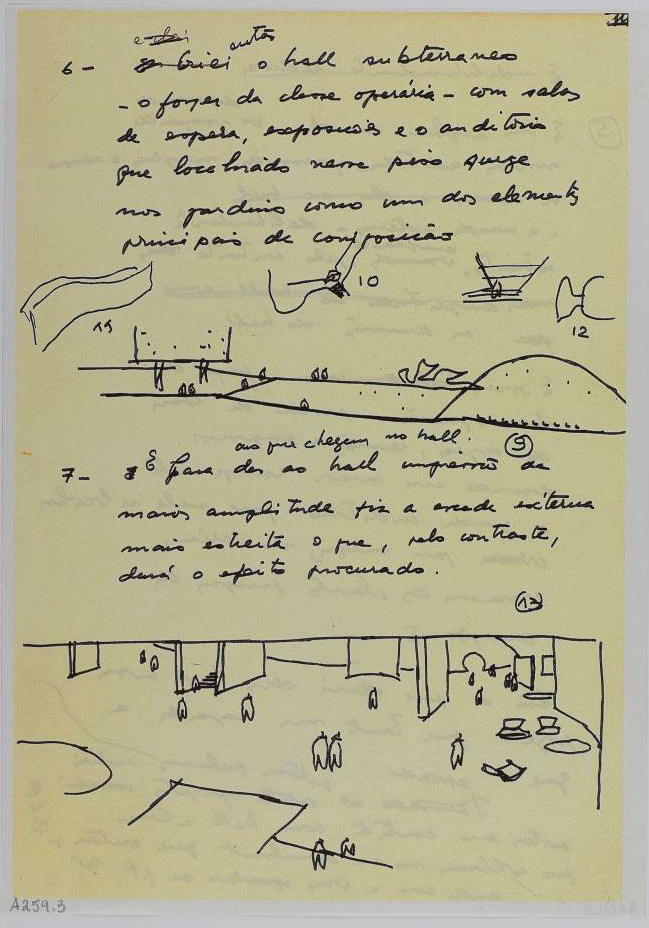 6 - criei então o hall subterraneo
- o foyer da classe operária - com salas
de espera, exposicões e o auditório
que localizado nesse piso surge
nos jardins como um dos elementos
principais de composição
10
11
12
9
aos que chegam no hall.
7 - E para dar ao hall impressão de
maior amplitude fiz a escada externa
mais estreita o que, pelo contraste,
dará o efeito procurado.
13
A259.3